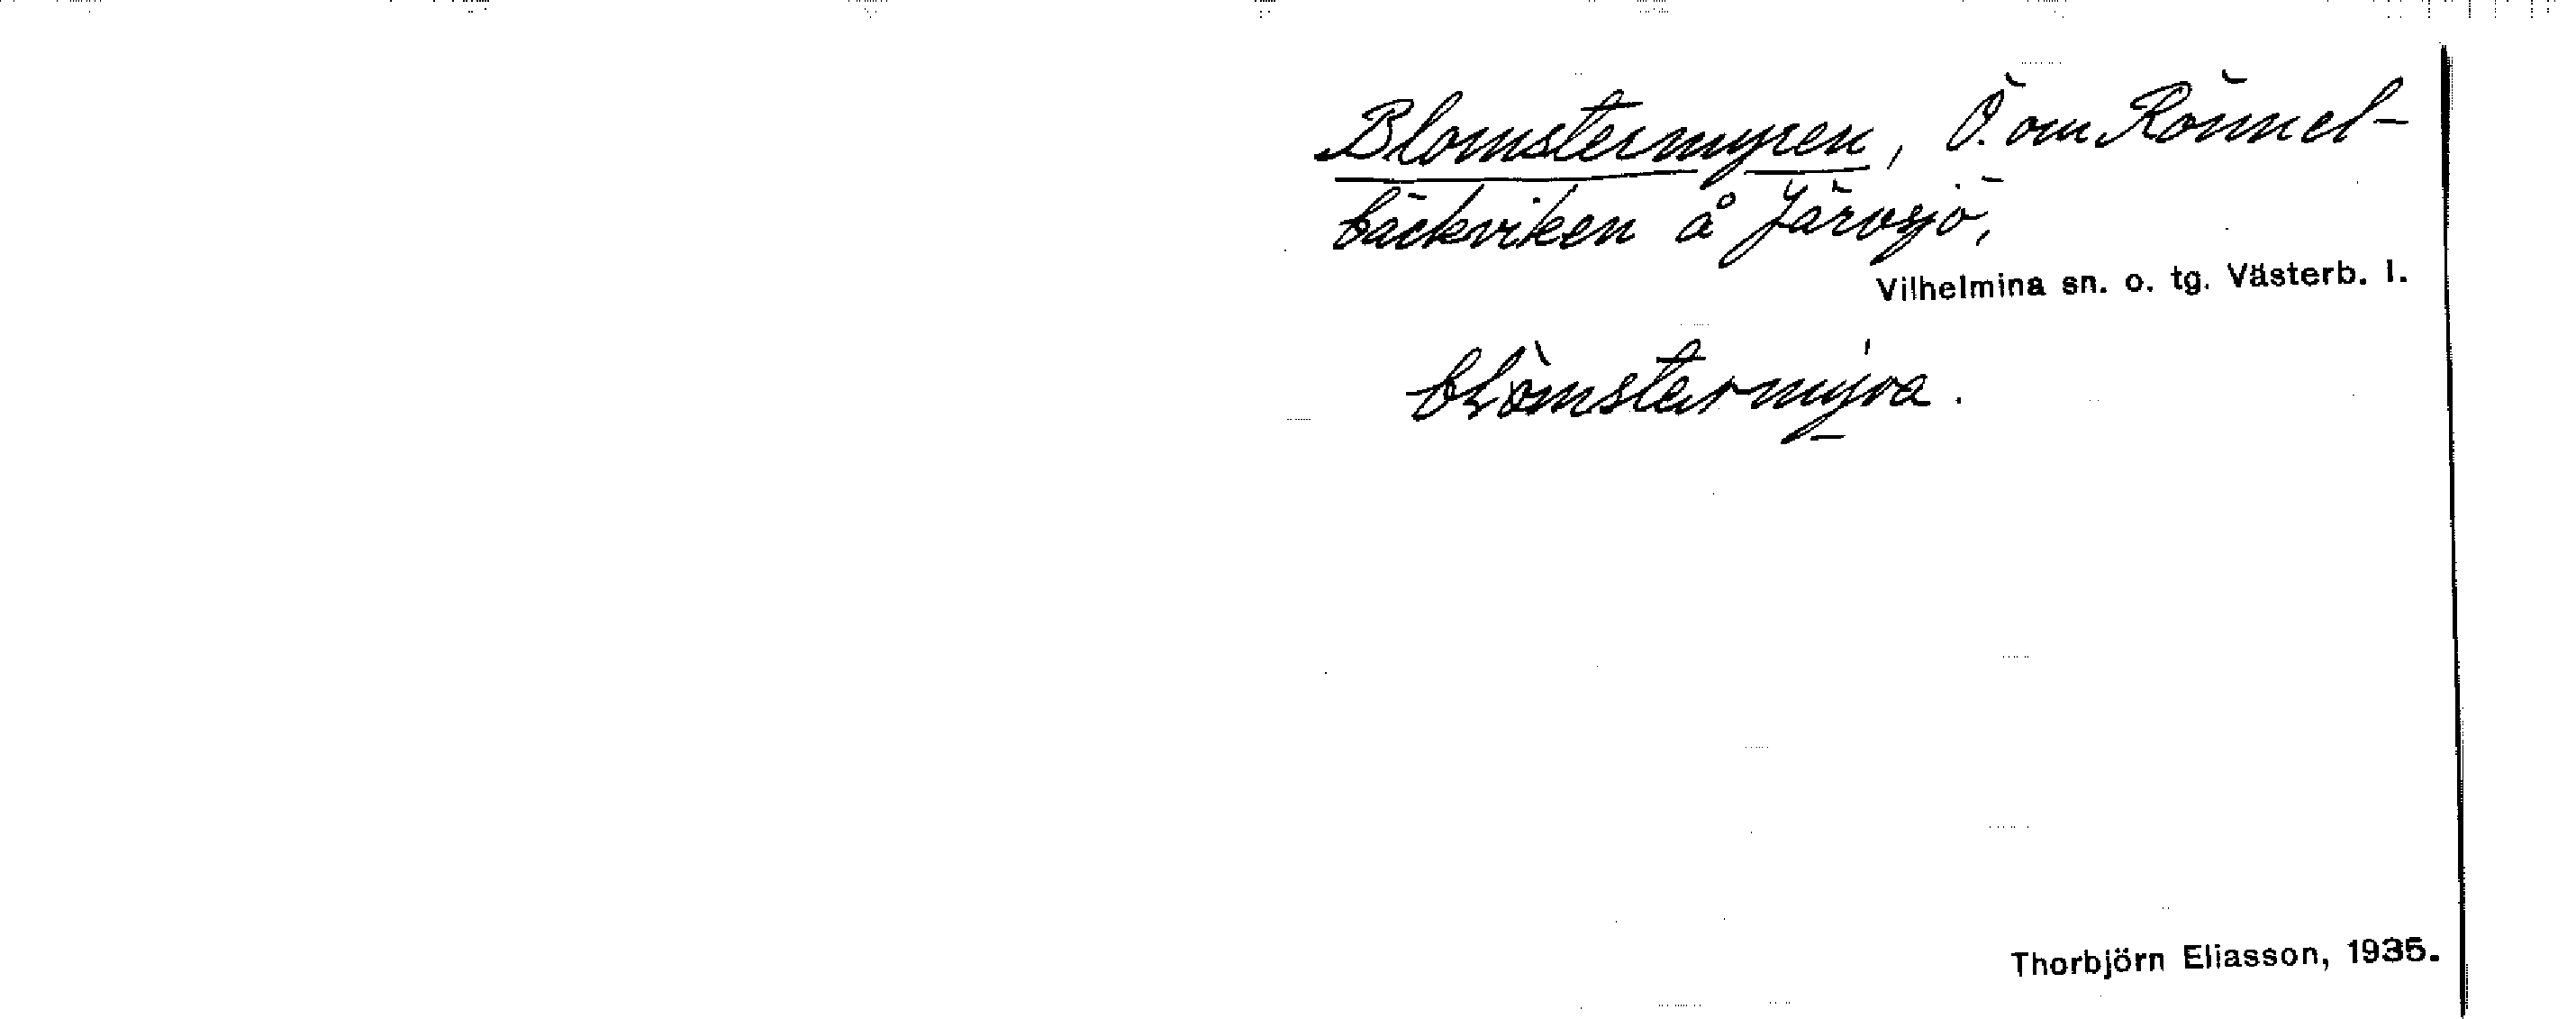 Blomstermyren, Ö. om Rönnel-
bäckviken å Järvsjö,
Vilhelmina sn. o. tg. Västerb. l.
Thorbjörn Eliasson, 1935.